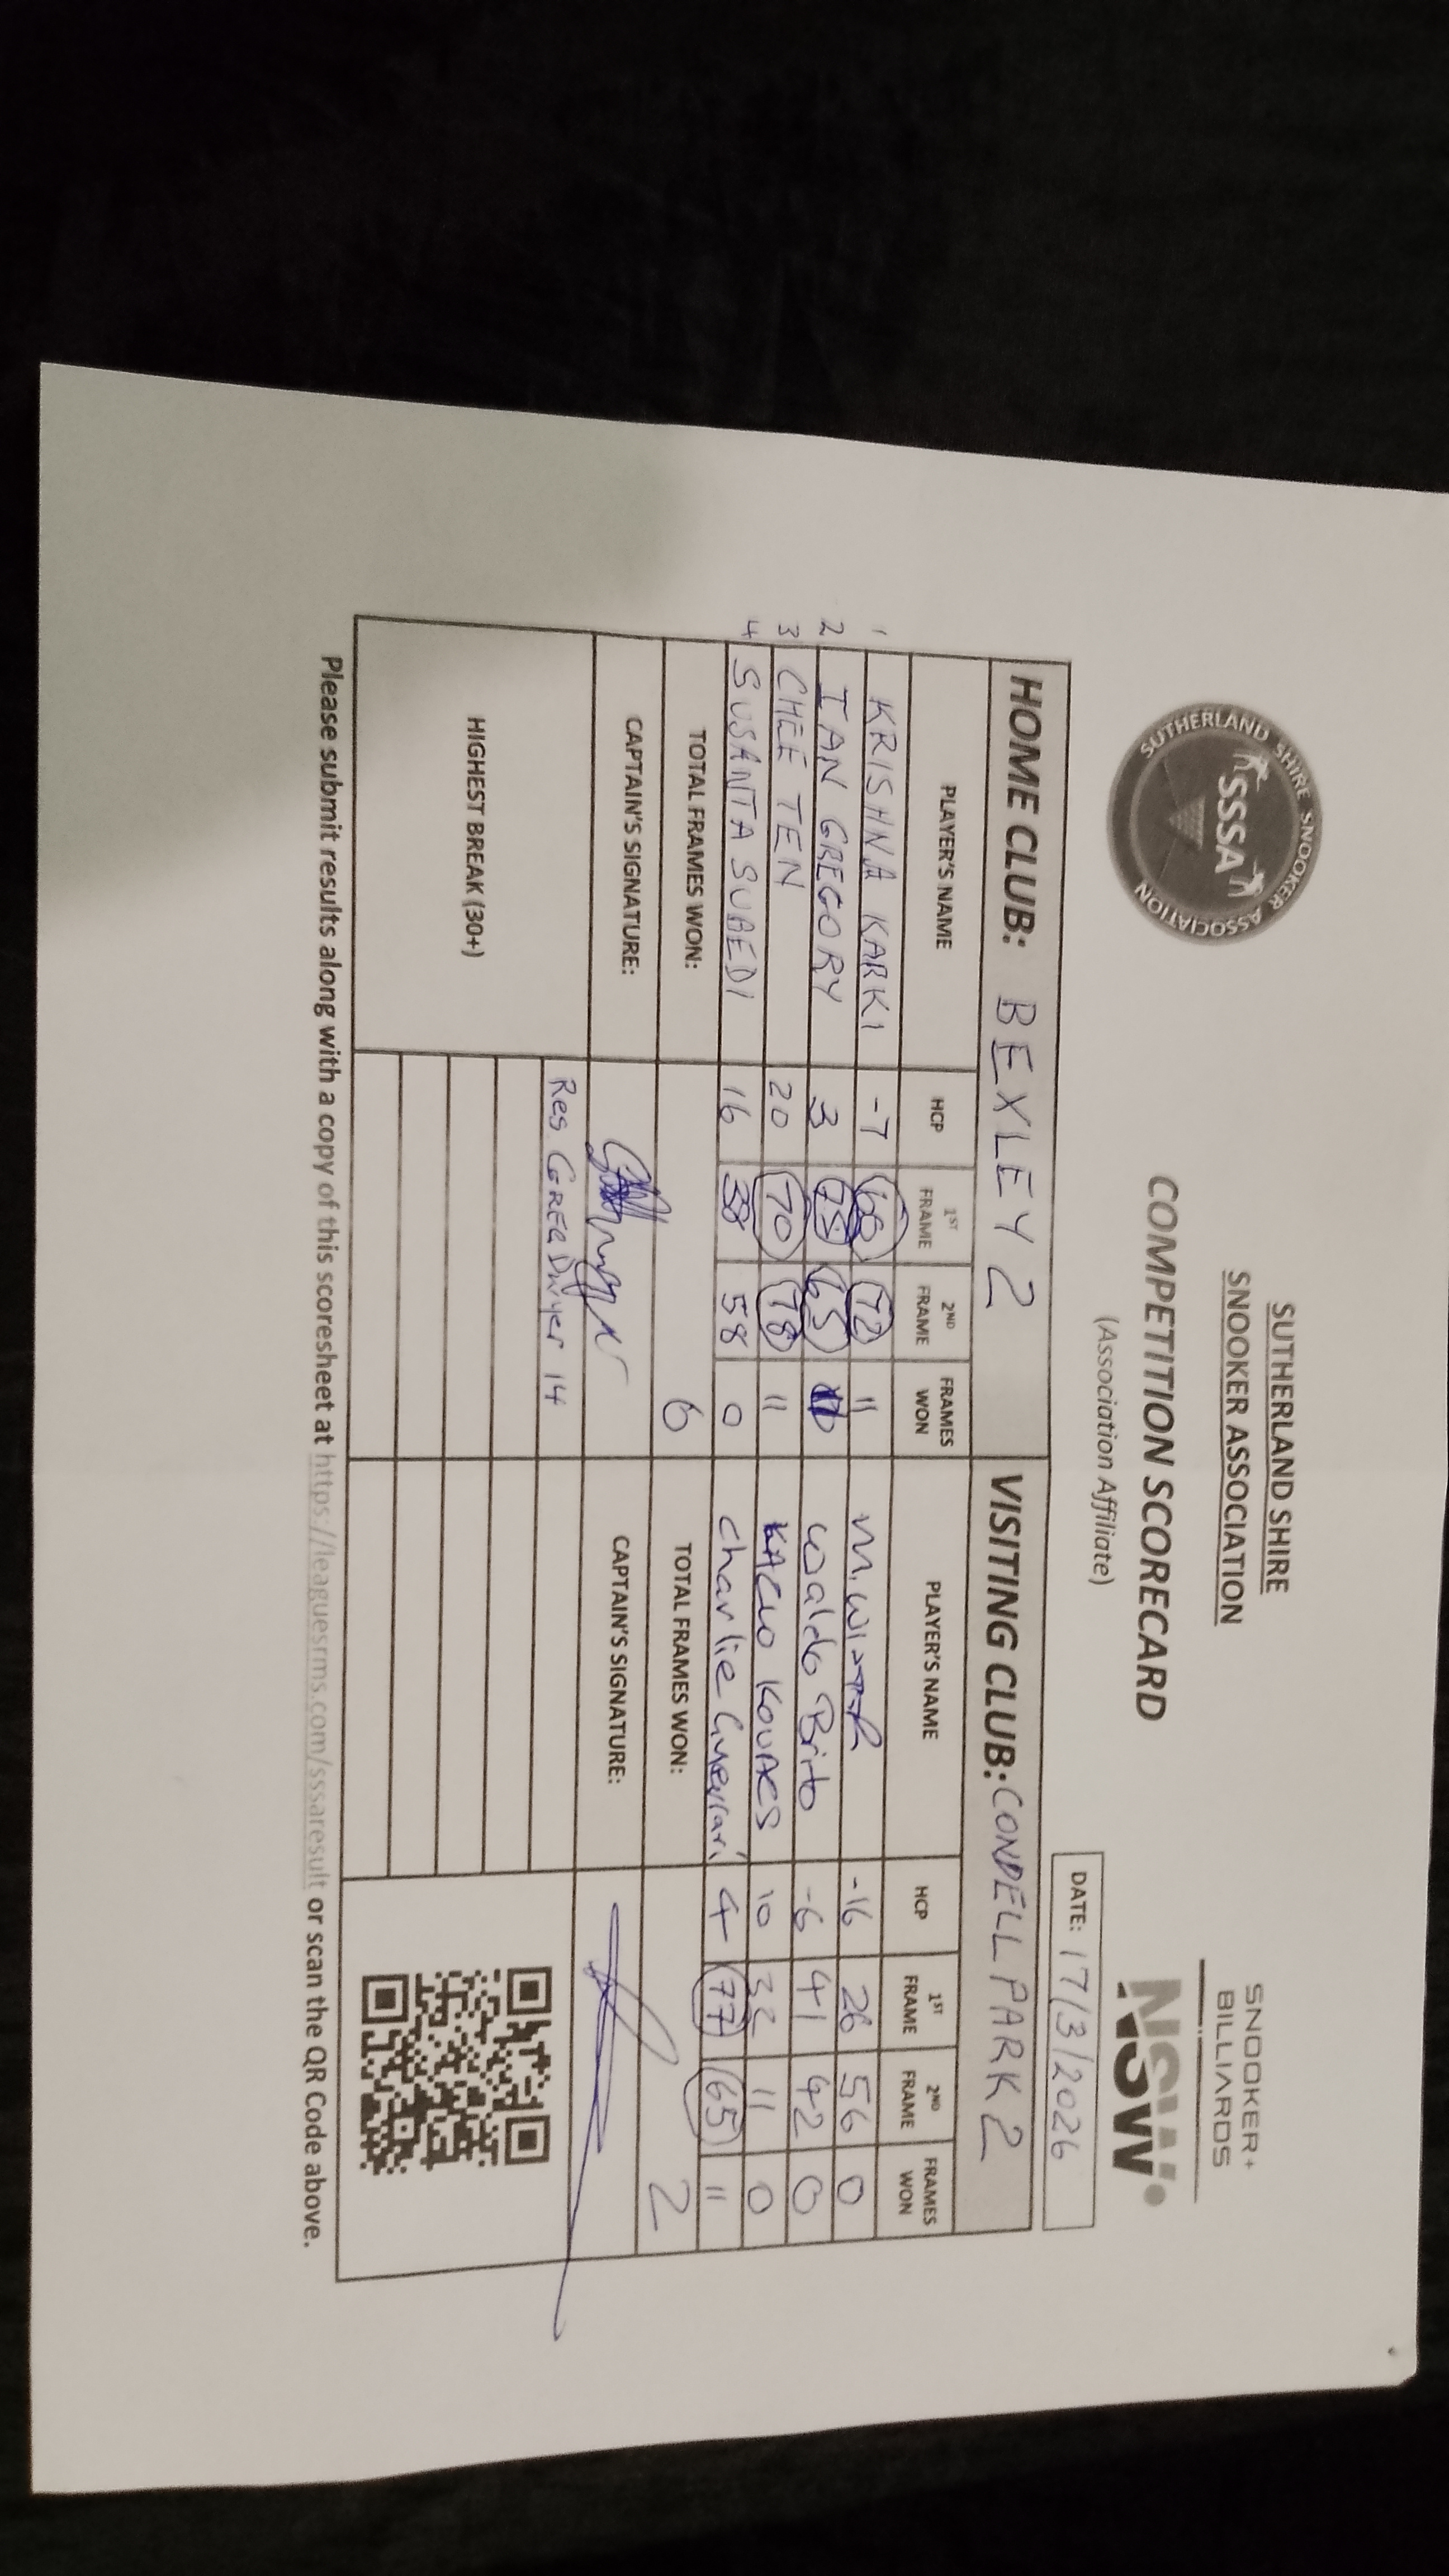 SUTHERLAND SHIRE SNOOKER ASSOCIATION
SSSA
SUTHERLAND SHIRE
SNOOKER ASSOCIATION
COMPETITION SCORECARD
(Association Affiliate)
SNOOKER+
BILLIARDS
NSW
DATE: 17/3/2026
HOME CLUB: BEXLEY 2 VISITING CLUB: CONDELL PARK 2
PLAYER'S NAME HCP 1ST FRAME 2ND FRAME FRAMES WON PLAYER'S NAME HCP 1ST FRAME 2ND FRAME FRAMES WON
1 KRISHNA KARKI -7 72 11 M. -16 26 56 0
2 IAN GREGORY 3 65 Waldo Brito -6 41 42 0
3 CHEE TEN 20 70 78 11 KOVACS 10 32 11 0
4 SUSANTA SUBEDI 16 38 58 0 Charlie 4 77 65 11
TOTAL FRAMES WON: 6 TOTAL FRAMES WON: 2
CAPTAIN'S SIGNATURE: CAPTAIN'S SIGNATURE:
HIGHEST BREAK (30+)
Res GREG Dwyer 14
Please submit results along with a copy of this scoresheet at https://leaguesrms.com/sssaresult or scan the QR Code above.